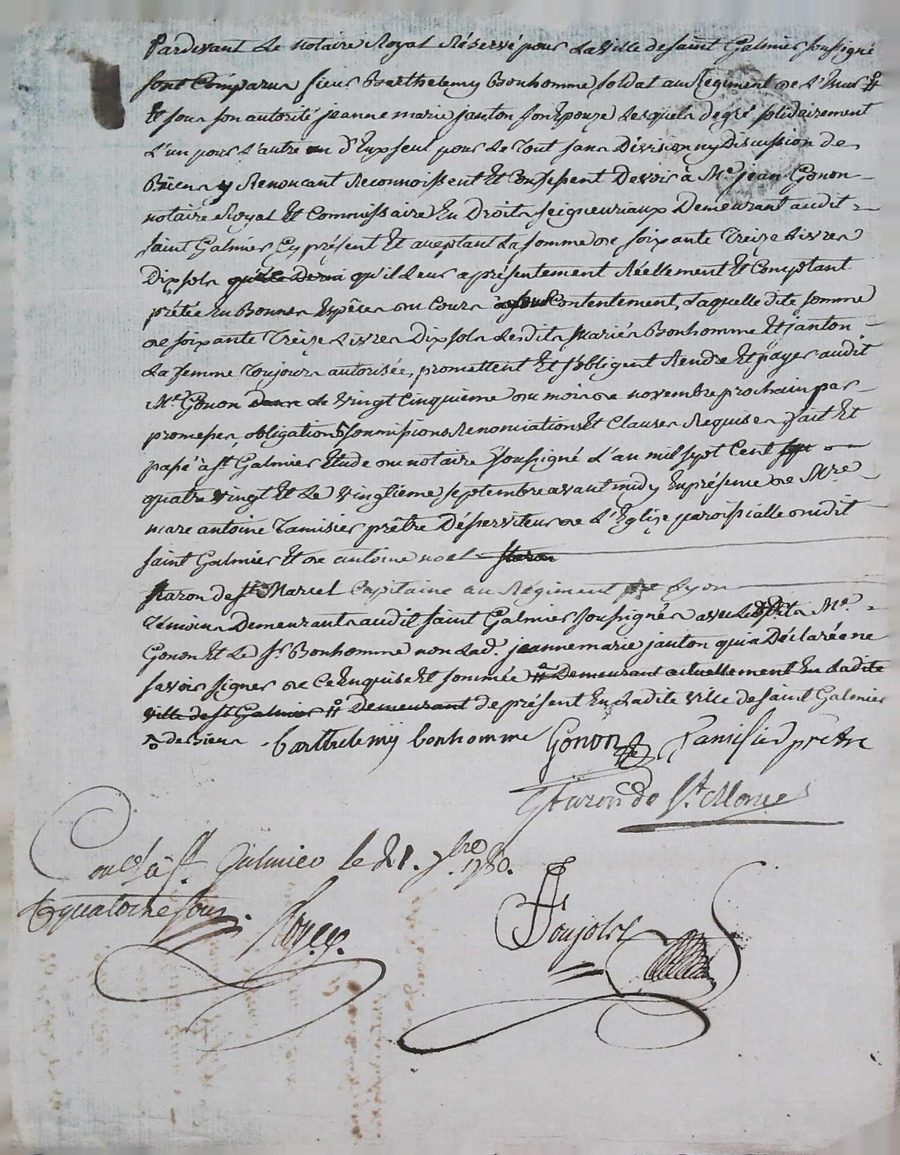 Pardevant Le Notaire Royal Réservé pour La Ville de saint Galmier soussigné
sont Comparus sieur Barthelemy Bonhomme soldat au Regiment de
Et sous son autorité jeanne marie janton son Epouze Lesquels de gré solidairement
L'un pour L'autre un d'Eux seul pour Le Tout sans Division ny Discussion de
Biens y Renoncant Reconnoissent Et Confessent Devoir à Me. jean Gonon
notaire Royal Et Commissaire En Droits seigneuriaux Demeurant audit
saint Galmier Cy présent Et acceptant La somme de soixante Treize Livres
Dix sols qu'il Leur a présentement Réellement Et Comptant
prêtée En Bonnes Espêces du Cours Contentement, Laquelle dite somme
de soixante Treize Livres Dix sols Lesdits Mariés Bonhomme Et janton
La femme Toujours autorisée, promettent Et s'obligent Rendre Et payer audit
Me. Gonon Le Vingt Cinquieme du mois de novembre prochain par
promesses, obligations soumissions Renonciations Et Clauses Requises fait Et
passé à st. Galmier Etude du notaire soussigné L'an mil sept Cent
quatre vingt Et Le vingtieme septembre avant midy En présence de Mre.
marc antoine Tamisier prêtre Désserviteur de L'Eglise paroissialle dudit
saint Galmier Et de antoine noel
Staron de st. Marcel Capitaine au Régiment de Lyon
Témoins Demeurants audit saint Galmier soussignés avec Me.
Gonon Et Le sr. Bonhomme non Lad. jeanne marie janton qui a Déclaré ne
savoir signer de Ce Enquise Et sommée # Demeurant actuellement En Ladite
ville de st. Galmier # Demeurant de présent En Ladite ville de saint Galmier
barthelemy bonhomme Gonon Tamisier prêtre
Staron de St. Marcel
Con.lé à St. Galmier le 21. 7bre 1780.
quatorze sous.